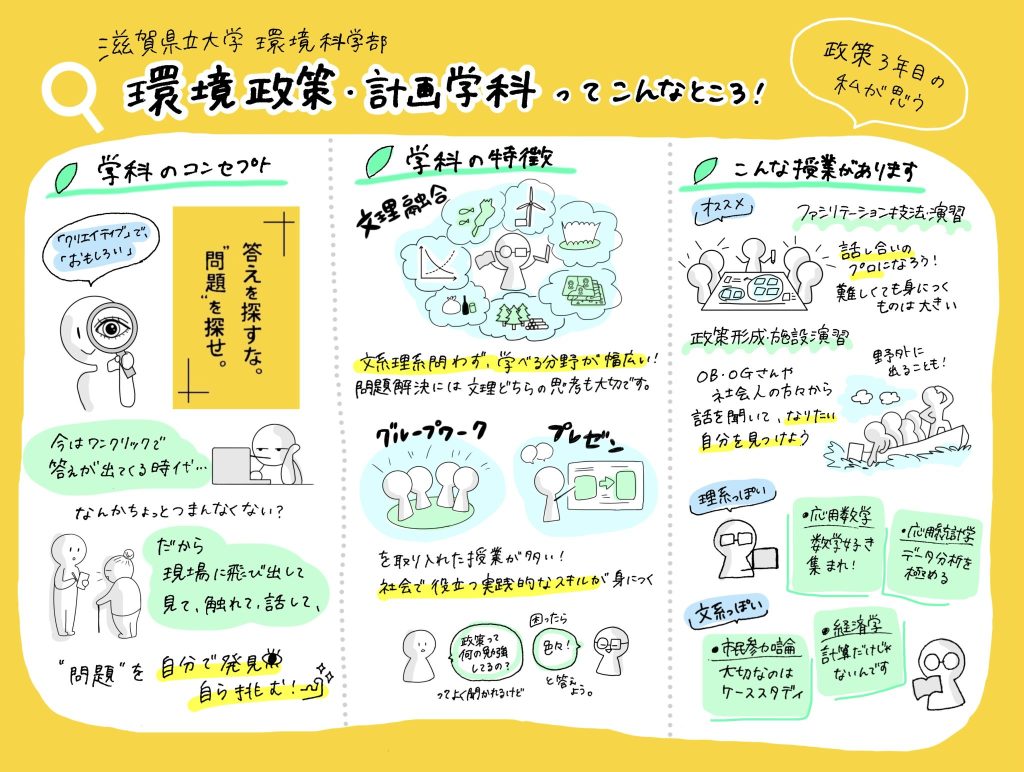 滋賀県立大学 環境科学部
環境政策・計画学科ってこんなところ!
政策3年目の
私が思う
学科のコンセプト
「クリエイティブ」で、
「おもしろい」
答えを探すな。
"問題"を探せ。
今はワンクリックで
答えが出てくる時代…
なんかちょっとつまんなくない?
だから
現場に飛び出して
見て、触れて、話して、
"問題"を自分で発見
自ら挑む!
学科の特徴
文理融合
文系理系問わず、学べる分野が幅広い!
問題解決には文理どちらの思考も大切です。
グループワーク
プレゼン
を取り入れた授業が多い!
社会で役立つ実践的なスキルが身につく
政策って
何の勉強
してるの?
ってよく聞かれるけど
困ったら
色々!
と答え
よう。
こんな授業があります
オススメ
ファシリテーション技法・演習
話し合いの
プロになろう!
難しくても身につく
ものは大きい
政策形成・施設演習
OB・OGさんや
社会人の方々から
話を聞いて、なりたい
自分を見つけよう
野外に
出ることも!
理系っぽい
・応用数学
数学好き
集まれ!
・応用統計学
データ分析を
極める
文系っぽい
・市民参加論
大切なのは
ケーススタディ
・経済学
計算だけじゃ
ないんです